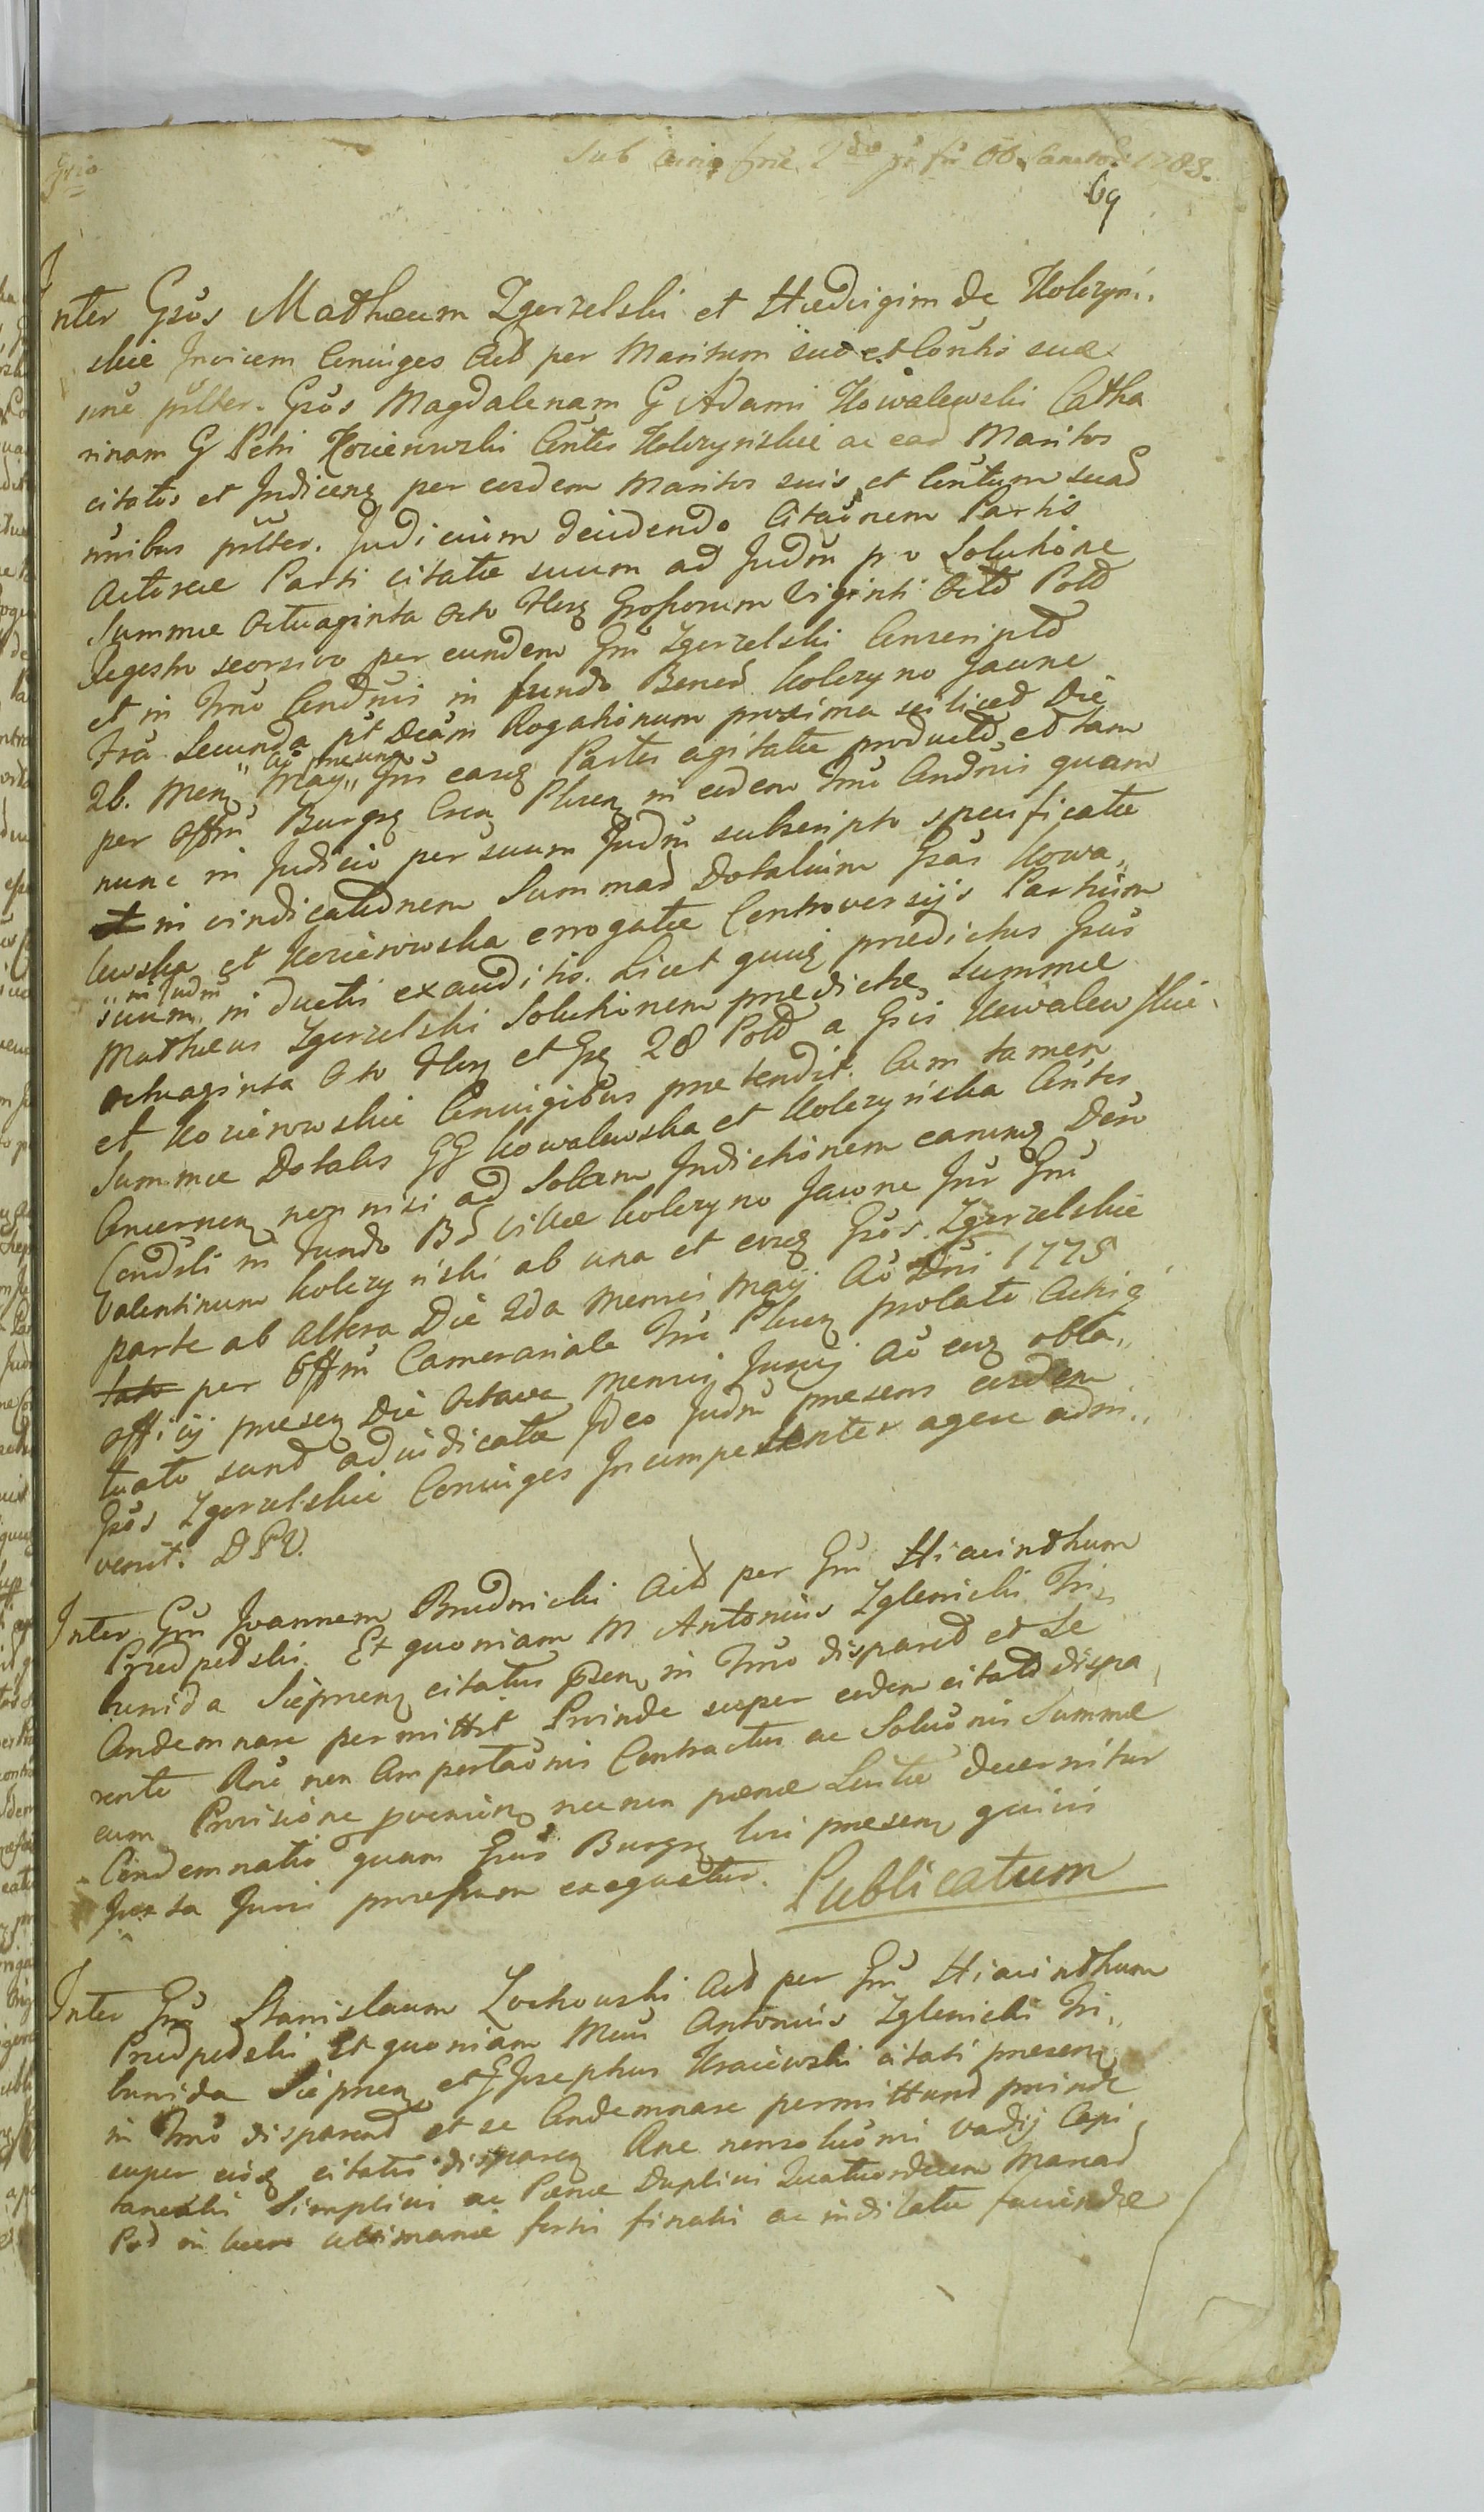 Sub Actu frie 2da pt fm OO. Sanctor: 1788.
69
Inter Gsos Mathæum Zgorzelski et Hedvigim de Kolczyn..
skie Invicem Coniuges Act per Maritum suo et Contho suæ
une pltter. Gsos Magdalenam G Adami Kowalewski Catha
rinam G Petri Korienwski Contes Kolczyńskie ac ead Maritos
citatos et Indicenq per eosdem Maritos suis et Contum suad
unibus pltter. Judicium decidendo Citaonem Partis
Actoreæ Parti citatæ suum ad Judm pro Solutione
Summæ Octuaginta Octo flenq Grossorum Viginti Octo Pold
Regestro seorsivo per eundem Gm Zgorzelski Conscripto
et in Tmo Condnis in fundo Bonod Kolczyno Jawne
Fria Secunda pt Dcam Rogationum proxima scilicet Die
26. Menq May Ao neunq Tms earq Partes agitatæ producto et tam
per Offm Burgq Cren Plocenq in eodem Tmo Condnis quam
nunc in Judicio per suum Judm subscripto specificatæ
et in vindicationem Summad Dotalium Gsas Kowa..
lewska et Korienowska errogatæ Controversijs Partium
suum in Judm in ductis exauditis. Licet quuq prædictus Gsus
Mathæus Zgorzelski Solutionem prædictæ Summæ
Octuaginta Octo flenq et Gq 28 Pold a Gsis Kowalewskie
et Korienowskie Coniugibus prætendit. Cum tamen
Summæ Dotales GG Kowalewska et Kolczyńska Contes
Concernenq non nisi ad Solam Indictionem earumq Deno
Condsli in Fundo Bd Villæ Kolczyno Jawne Int Gm
Valentinum Kolczyński ab una et eosq Gsos Zgorzelskie
parte ab altera Die 2da Mensis Maij Ao Dni 1778
per Offm Camerariale Tre Plocenq prolato Actisq
Officij præsenq Die Octava Mensis Junij Ao eoq obla..
tuato sunt adiudicatæ Ideo Judm præsens eosdem
Gsos Zgorzelskie Coniuges Incompetenter agere adin..
venit. DPU.
Inter Gm Joannem Brudnicki Act per Gm Hiacinthum
Prudpedski. Et quoniam M Antonius Zglenicki Tri..
bunida Siepnenq citatus psenq in Tmo disparet et se
Condemnare permittit Proinde super eodem citato dispa
rente Rne non Comportaonis Contractus ac Soluonis Summæ
cum Provisione provenienq necnon pænæ Lucta decernitur
Condemnatio quam Gsus Burgq loci præsenq quivis
Juxta Juris præscriptum exequetur. Publicatum
Inter Gm Stanislaum Zochowski Act per Gm Hiacinthum
Prudpedski Et quoniam Mcus Antonius Zglenicki Tri..
bunida Siepnenq et G Josephus Kraiewski citati præsenq
in Tmo disparent et se Condemnare permittunt proinde
super eisq citatis disparenq Rne nonsoluonis Vadij Capi
tanealis Simplicis ac Pænæ Duplicis Quatuordecim Marcad
Pod in luero ultimariæ fortis finalis ac indilatæ faciendæ